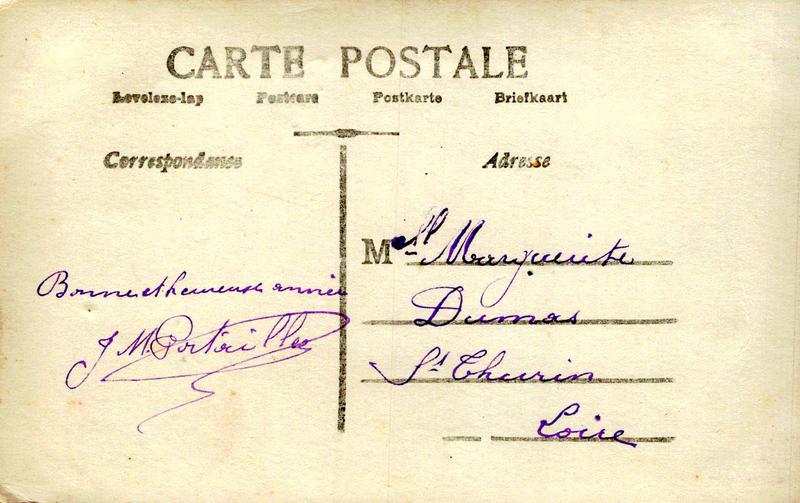 CARTE POSTALE
Levelezo-lap Postcard Postkarte Briefkaart
Correspondance
Adresse
Bonne et heureuse année
J M
Mell Marguerite
Dumas
St Thurin
Loire